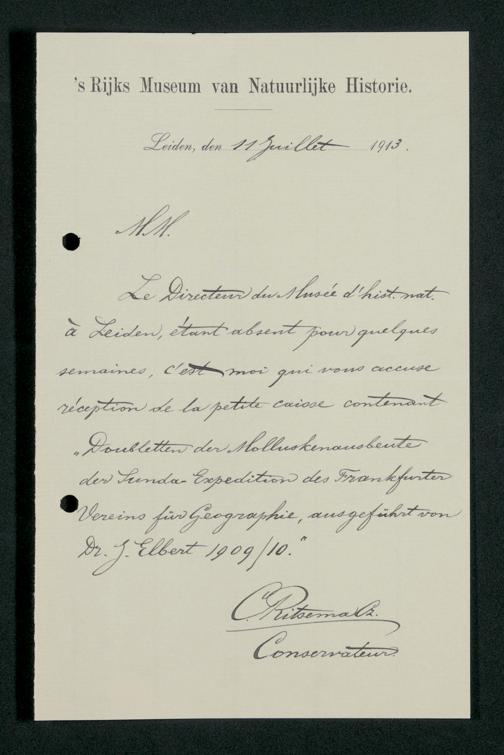 's Rijks Museum van Natuurlijke Historie.
Leiden, den 11 Juillet 1913.
MM.
Le Directeur du Musée d'hist. nat.
à Leiden, étant absent pour quelques
semaines, c'est moi qui vous accuse
réception de la petite caisse contenant
„Doubletten der Molluskenausbeute
der Sunda-Expedition des Frankfurter
Vereins für Geographie, ausgeführt von
Dr. J. Elbert 1909/10."
C. Ritsema Cz.
Conservateur.